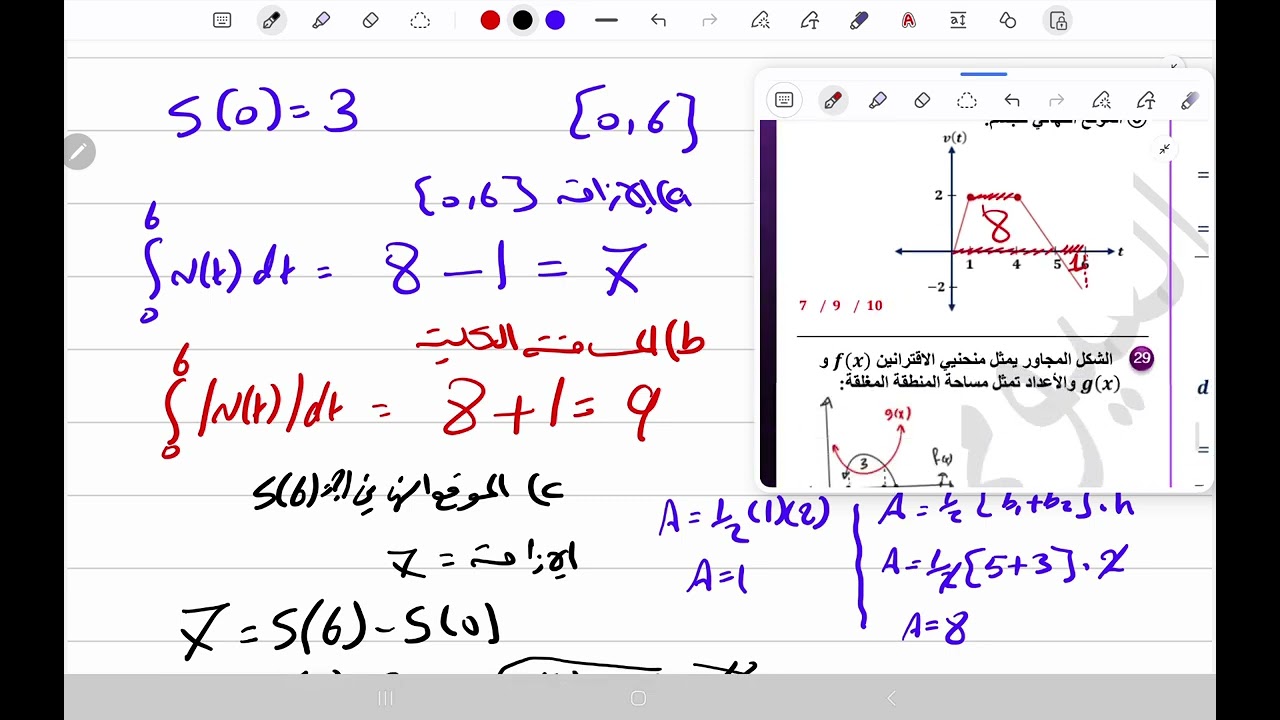 S(0) = 3 [0,6]
a) الإزاحة [0,6]
∫₀⁶ v(t) dt = 8 - 1 = 7
b) المسافة الكلية
∫₀⁶ |v(t)| dt = 8 + 1 = 9
c) الموقع النهائي S(6)=??
الإزاحة = 7
7 = S(6) - S(0)
A = 1/2 (1)(2)
A = 1
A = 1/2 [b₁ + b₂] . h
A = 1/2 [5 + 3] . 2
A = 8
v(t)
2
8
1 4 5 6 t
1
-2
7 / 9 / 10
29 الشكل المجاور يمثل منحنيي الاقترانين f(x) و
g(x) والأعداد تمثل مساحة المنطقة المغلقة:
g(x)
3
f(x)
=
=
d
=